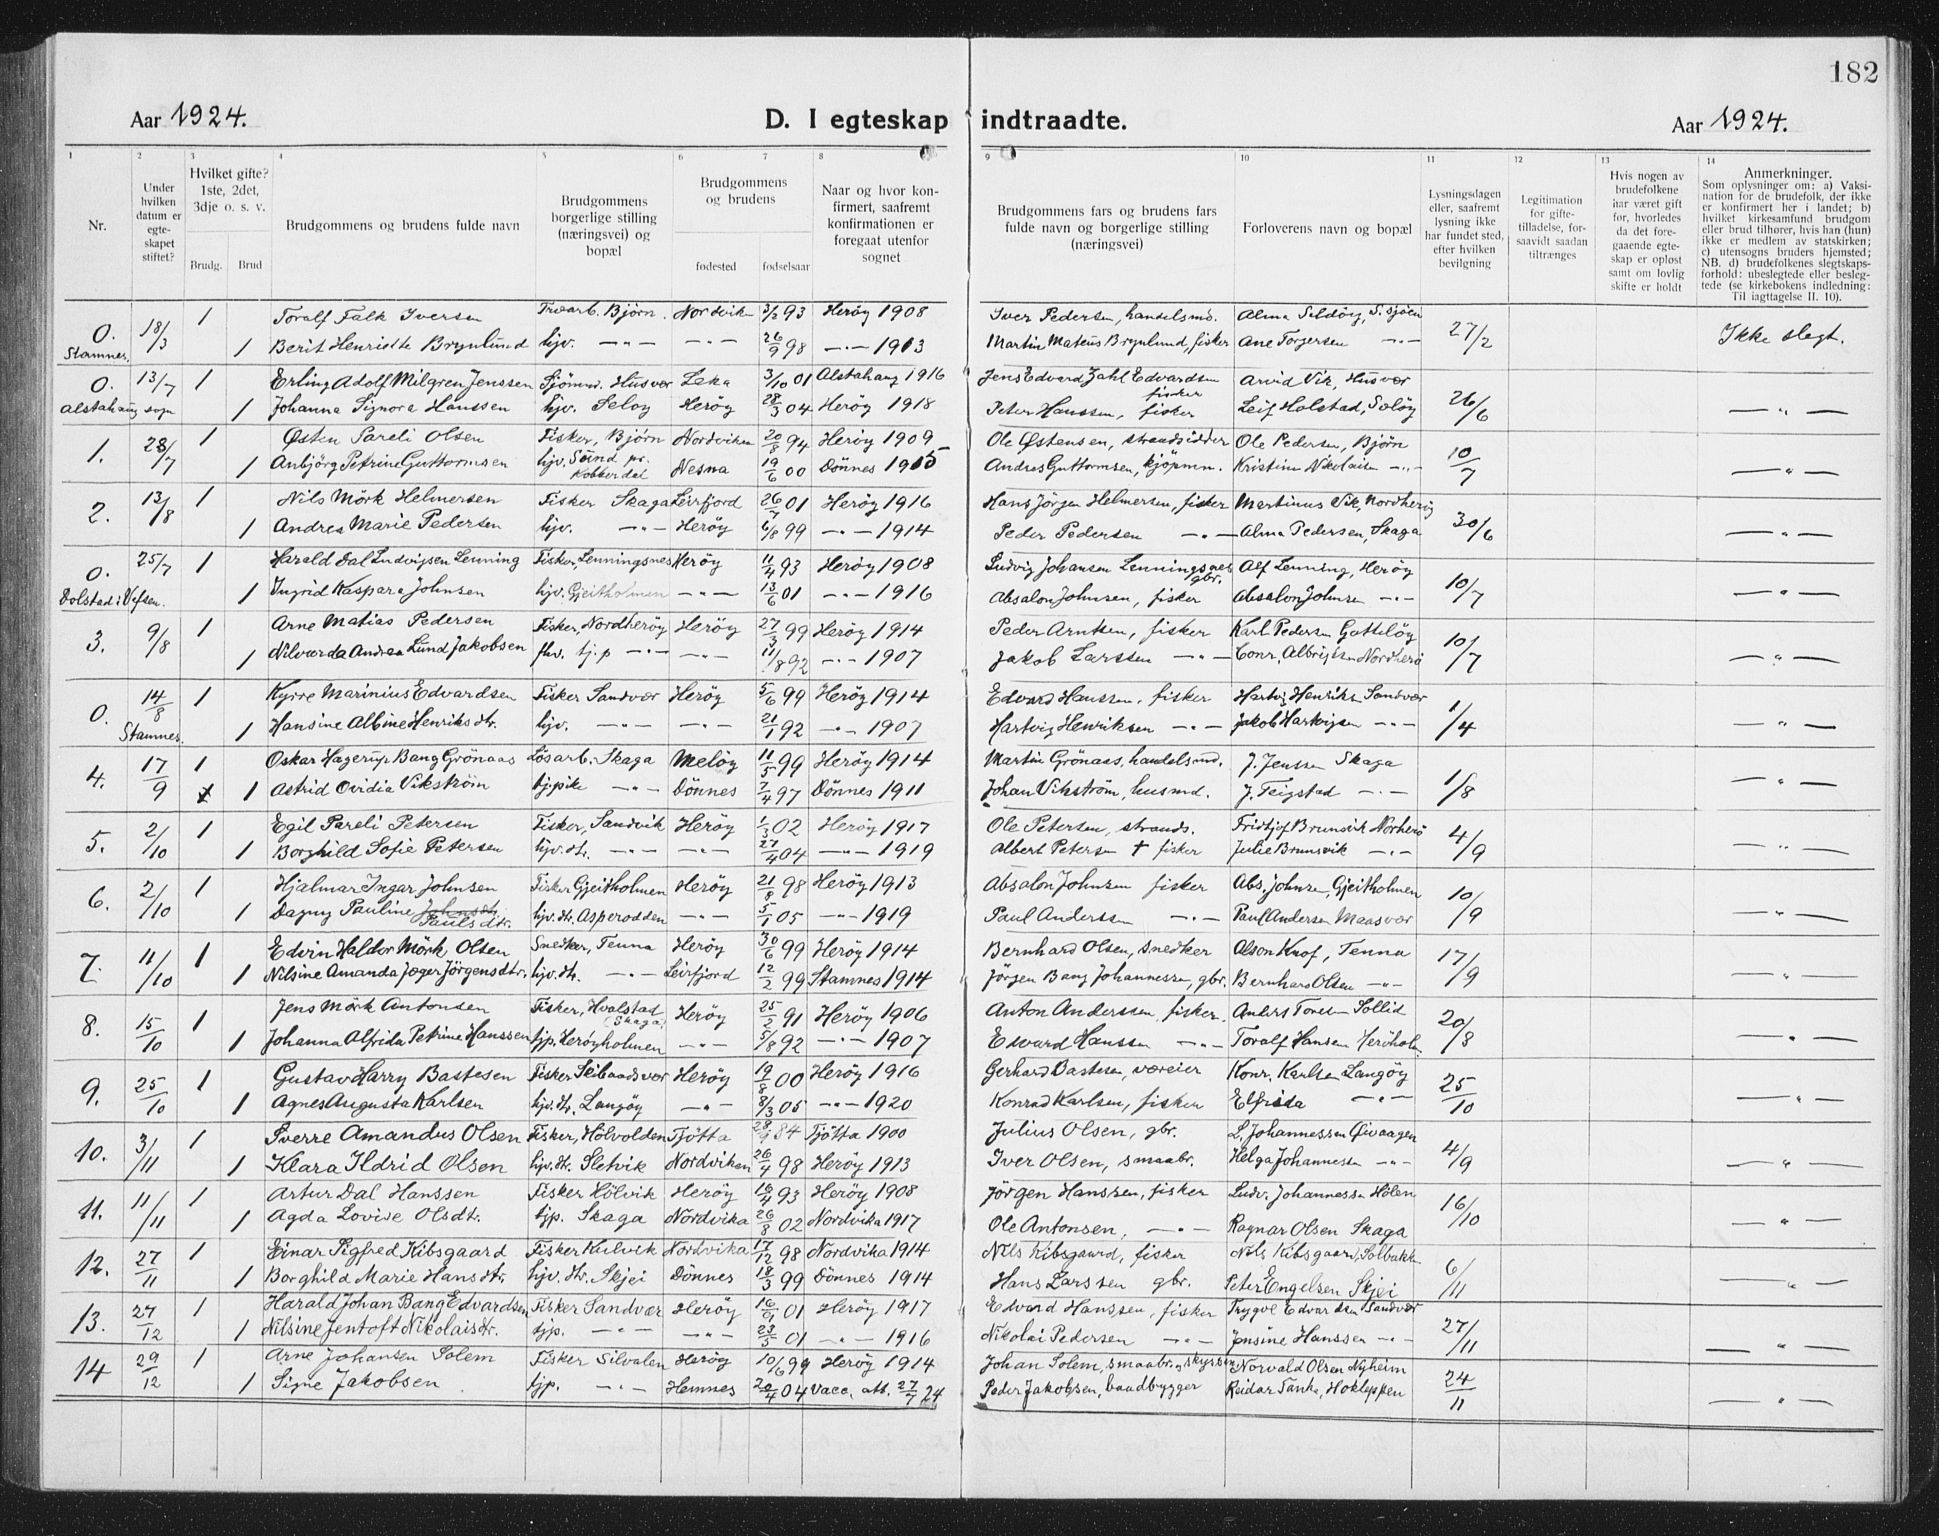 182
Aar 1924. D. I egteskap indtraadte. Aar 1924.
1 2 3 4 5 6 7 8 9 10 11 12 13 14
Nr.
Under hvilken datum er egte-skapet stiftet?
Hvilket gifte? 1ste, 2det, 3dje o. s. v.
Brudg. Brud
Brudgommens og brudens fulde navn
Brudgommens borgerlige stilling (næringsvei) og bopæl
Brudgommens og brudens
fødested fødselsaar
Naar og hvor kon-firmert, saafremt konfirmationen er foregaat utenfor sognet
Brudgommens fars og brudens fars fulde navn og borgerlige stilling (næringsvei)
Forloverens navn og bopæl
Lysningsdagen eller, saafremt lysning ikke har fundet sted, efter hvilken bevilgning
Legitimation for gifte-tilladelse, for-saavidt saadan tiltrænges
Hvis nogen av brudefolkene har været gift før, hvorledes da det fore-gaaende egte-skap er opløst samt om lovlig skifte er holdt
Anmerkninger.
Som oplysninger om: a) Vaksi-nation for de brudefolk, der ikke er konfirmert her i landet; b) hvilket kirkesamfund brudgom eller brud tilhører, hvis han (hun) ikke er medlem av statskirken; c) utensogns bruders hjemsted; NB. d) brudefolkenes slegtskaps-forhold: ubeslegtede eller besleg-tede (se kirkebokens indledning: Til iagttagelse II. 10).
0. 18/3 1 Toralf Falk Iversen Træarb. Bjørn. Nordviken 3/2 93 Herøy 1908 Iver Pedersen, handelsmd. Alma Sildöy, S. sjøen 27/2 Ikke slegt.
Stamnes. 1 Berit Henriette Brynlund hjv. -"- -"- 26/9 98 -"- 1913 Martin Mateus Brynlund, fisker Ane Torgersen -"-
0. 13/7 1 Erling Adolf Milgren Jenssen Sjömand. Husvær Leka 3/10 01 Alstahaug 1916 Jens Edvard Zahl Edvardsen fisker Arvid Vik, Husvær 26/6 -"-
Alstahaug sogn 1 Johanna Signora Hanssen hjv. Seløy Herøy 28/3 04 Herøy 1918 Peter Hanssen, fisker Leif Holstad, Seløy
1. 28/7 1 Østen Pareli Olsen Fisker, Bjørn Nordviken 20/8 94 Herøy 1909 Ole Østensen, strandsidder Ole Pedersen, Bjørn 10/7 -"-
1 Anbjörg Petrine Guttormsen hjv. Sund pr. Kobberdal Nesna 19/6 00 Dönnes 1915 Andreas Guttormsen, kjöpmn. Kristine Nikolaisen -"-
2. 13/8 1 Nils Mörk Helmersen Fisker Skaga Leirfjord 26/7 01 Herøy 1916 Hans Jörgen Helmersen, fisker Martinus Vik, Nordherøy 30/6 -"-
1 Andrea Marie Pedersen hjv. -"- Herøy 6/8 99 -"- 1914 Peder Pedersen -"- Alma Pedersen, Skaga
0. 25/7 1 Harald Dal Ludvigsen Lenning Fisker, Lenningsnes Herøy 11/4 93 Herøy 1908 Ludvig Johansen Lenningsnes gbr. Alf Lenning, Herøy 10/7 -"-
Dolstad i Vefsen. 1 Ingrid Kaspara Johnsen hjv. Gjeitholmen -"- 13/6 01 -"- 1916 Absalon Johnsen, fisker Absalon Johnsen -"-
3. 9/8 1 Arne Matias Pedersen Fisker, Nordherøy Herøy 27/3 99 Herøy 1914 Peder Arntsen, fisker Karl Pedersen 10/7 -"-
1 Nilvarda Andrea Lund Jakobsen fhv. tj.p -"- -"- 11/8 92 -"- 1907 Jakob Larssen -"- Conr. Albrigtsen Nordherø
0. 14/8 1 Kyrre Marinius Edvardsen Fisker Sandvær Herøy 5/6 99 Herøy 1914 Edvard Hanssen, fisker Hartvig Henriksn Sandvær 1/4 -"-
Stamnes. 1 Hansine Albine Henriksdtr. hjv. -"- -"- 21/1 92 -"- 1907 Hartvig Henriksen -"- Jakob Hartvigsen -"-
4. 17/9 1 Oskar Hagerup Bang Grönaas Lösarb. Skaga Meløy 11/5 99 Herøy 1914 Martin Grönaas, handelsmd. J. Jenssen Skaga 1/8 -"-
1 Astrid Ovidia Vikström tj.pike -"- Dönnes 2/4 97 Dönnes 1911 Johan Vikström, husmd. J. Teigstad -"-
5. 2/10 1 Egil Pareli Petersen Fisker, Sandvik Herøy 1/3 02 Herøy 1917 Ole Petersen, strands. Fridtjof Brunsvik Norherø 4/9 -"-
1 Borghild Sofie Petersen hjv. dtr. -"- -"- 27/4 04 -"- 1919 Albert Petersen † fisker Julie Brunsvik -"-
6. 2/10 1 Hjalmar Ingar Johnsen Fisker Gjeitholmen Herøy 21/8 98 Herøy 1913 Absalon Johnsen fisker Abs. Johnsen, Gjeitholmen 10/9 -"-
1 Dagny Pauline Paulsdtr. hjv. dtr. Asperodden -"- 5/1 05 -"- 1919 Paul Anderssen -"- Paul Andersen Maasvær
7. 11/10 1 Edvin Haldor Mörk Olsen Snedker, Tenna Herøy 30/6 99 Herøy 1914 Bernhard Olsen, snedker Alson Knof, Tenna 17/9 -"-
1 Nilsine Amanda Jæger Jörgensdtr. hjv. dtr. -"- Leirfjord 12/2 99 Stamnes 1914 Jörgen Bang Johannessen, gbr. Bernhard Olsen -"-
8. 15/10 1 Jens Mörk Antonsen Fisker, Hvalstad (Skaga) Herøy 25/2 91 Herøy 1906 Anton Anderssen, fisker. Sollid 20/8 -"-
1 Johanna Alfrida Petrine Hanssen tjp. Herøyholmen -"- 5/8 92 -"- 1907 Edvard Hanssen -"- Toralf Hansen Herøholm
9. 25/10 1 Gustav Harry Bastesen Fisker Skibaadsvær Herøy 19/8 00 Herøy 1916 Gerhard Bastesen, væreier Konr. Karlsen Langøy 25/10 -"-
1 Agnes Augusta Karlsen hjv. dtr. Langøy -"- 8/3 05 -"- 1920 Konrad Karlsen, fisker Elfrida -"-
10. 3/11 1 Sverre Amandus Olsen Fisker, Holvolden Tjøtta 28/9 84 Tjøtta 1900 Julius Olsen, gbr. L. Johannessen Øivaagen 4/9 -"-
1 Klara Ildrid Olsen hjv. dtr. Sletvik Nordviken 26/4 98 Herøy 1913 Iver Olsen, smaabr. Helga Johannessen -"-
11. 11/11 1 Artur Dal Hanssen Fisker Hölvik Herøy 16/4 93 Herøy 1908 Jörgen Hanssen, fisker Ludv. Johannessen Hölen 16/10 -"-
1 Agda Lovise Olsdtr. tjp. Skaga Nordvika 26/8 02 Nordvika 1917 Ole Antonsen, -"- Ragnar Olsen Skaga
12. 27/11 1 Einar Sigfred Kibsgaard Fisker Kulvik Nordvika 17/12 98 Nordvika 1914 Nils Kibsgaard, fisker Nils Kibsgaard, Solbakk 6/11 -"-
1 Borghild Marie Hansdtr. hjv. dtr. Skjei Dönnes 18/3 99 Dönnes 1914 Hans Larssen gbr. Peter Engelsen Skjei
13. 27/12 1 Harald Johan Bang Edvardsen Fisker Sandvær Herøy 16/9 01 Herøy 1917 Edvard Hanssen, fisker Trygve Edvardsen Sandvær 27/11 -"-
1 Nilsine Jentoft Nikolaisdtr. tjp. -"- -"- 23/5 01 -"- 1916 Nikolai Pedersen -"- Jensine Hanssen -"-
14 29/12 1 Arne Johansen Solem Fisker Silvalen Herøy 10/6 99 Herøy 1914 Johan Solem, smaabr. og skyssm Norvald Olsen Nyheim 24/11 -"-
1 Signe Jakobsen tjp. -"- Hemnes 20/4 04 Vacc. att. 27/7 24 Peder Jakobsen, baadbygger Reidar Tanke, Hokleppen